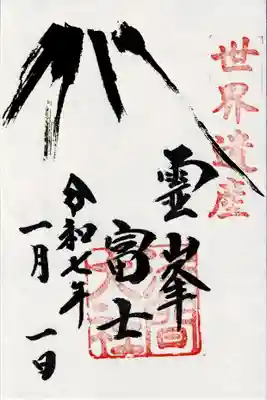 世界遺産
霊峯
富士
浅間大社
令和七年
一月 一日